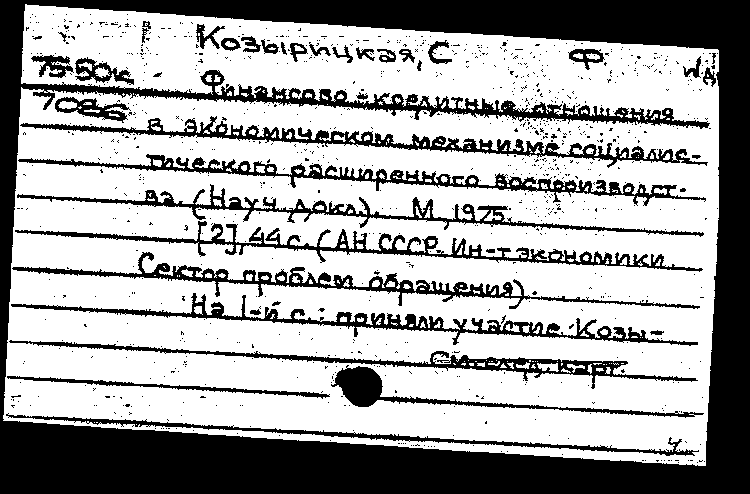 Козырицкая, С Ф
75-80к
7086
Финансово-кредитные отношения
в экономическом механизме социалис-
тического расширенного воспроизводст-
ва. (Науч. докл.). М., 1975.
[2], 44 с. (АН СССР. Ин-т экономики.
Сектор проблем обращения).
На 1-й с.: приняли участие Козы-
См. след. карт.